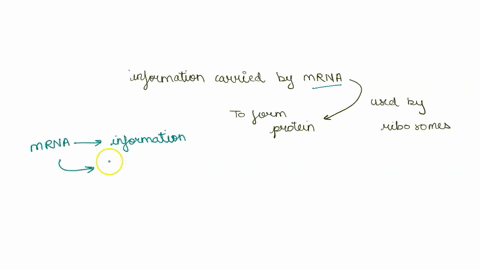 information carried by mRNA
To form protein
used by ribosomes
mRNA → information